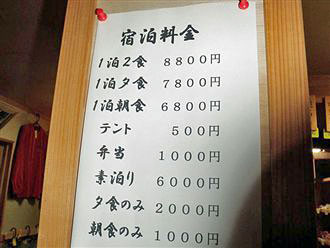 宿泊料金
1泊2食 8800円
1泊夕食 7800円
1泊朝食 6800円
テント 500円
弁当 1000円
素泊り 6000円
夕食のみ 2000円
朝食のみ 1000円